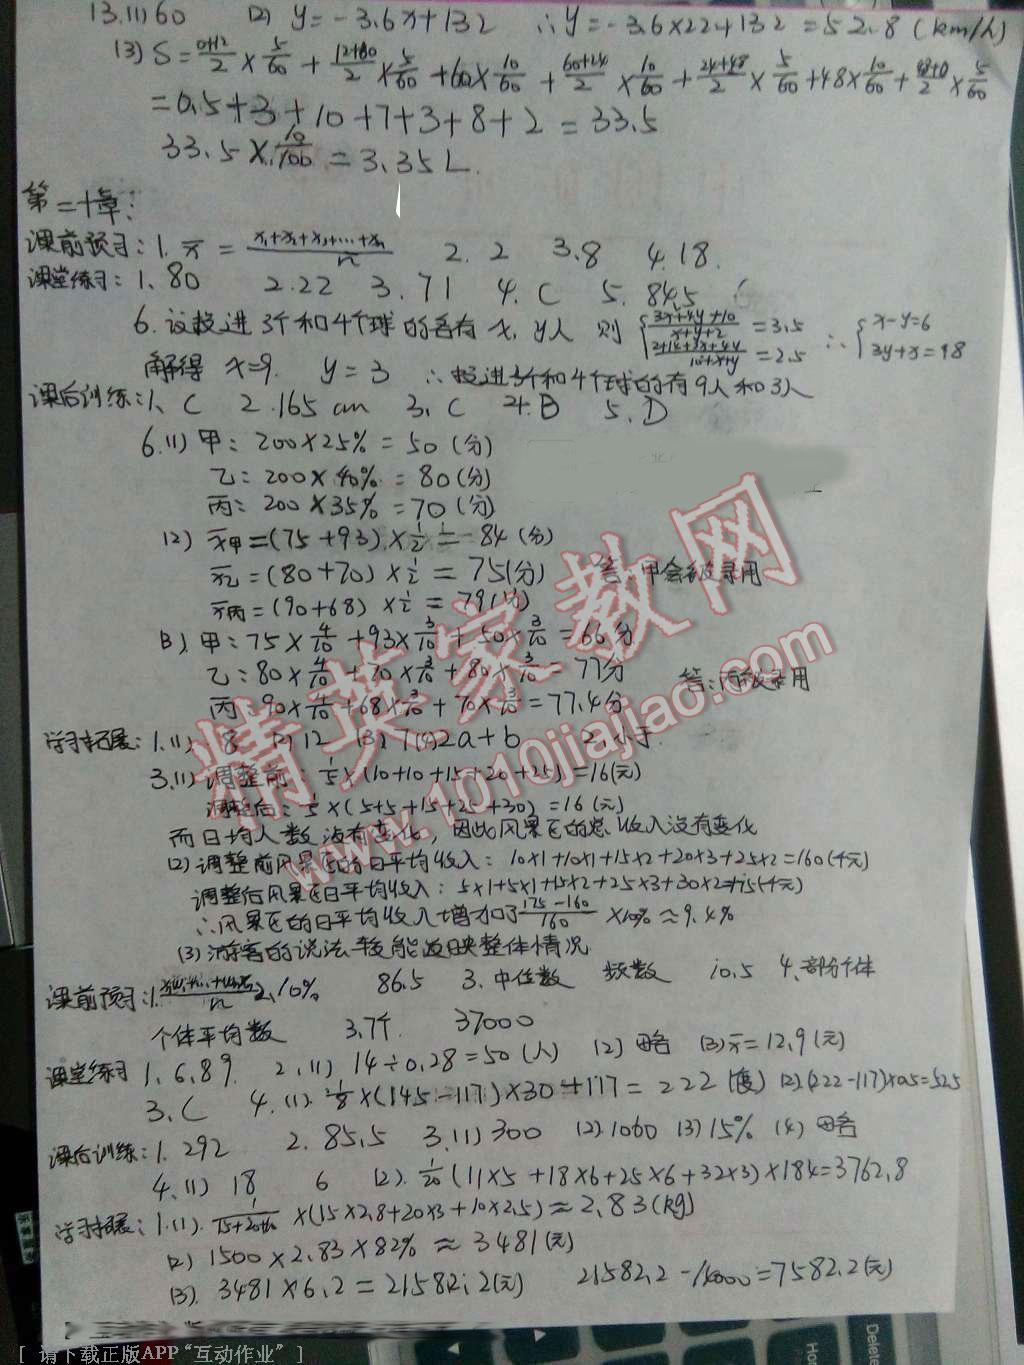 13.(1) 60 (2) y=-3.6x+132 ∴y=-3.6×22+132=52.8(km/h)
(3) S=(0+12)/2×5/60+(12+60)/2×5/60+60×10/60+(60+24)/2×10/60+(24+48)/2×5/60+48×10/60+(48+0)/2×5/60
=0.5+3+10+7+3+8+2=33.5
33.5×10/100=3.35L.
第二十章:
课前预习:1. x̄=(x₁+x₂+x₃+...+xₙ)/n 2. 2 3.8 4.18.
课堂练习:1、80 2.22 3.71 4.C 5.84.5
6.设投进3个和4个球的各有x,y人 则 {(3x+4y+10)/(x+y+2)=3.5 (2+14+3x+4y)/(10+x+y)=2.5 ∴{x-y=6 3y+x=18
解得 x=9. y=3 ∴投进3个和4个球的有9人和3人
课后训练:1、C 2.165cm 3、C 4.B 5、D
6.(1)甲:200×25%=50(分)
乙:200×40%=80(分)
丙:200×35%=70(分)
(2) x̄甲=(75+93)×1/2=84(分)
x̄乙=(80+70)×1/2=75(分) 答:甲会被录用
x̄丙=(90+68)×1/2=79(分)
(3).甲:75×4/10+93×3/10+50×3/10=66分
乙:80×4/10+70×3/10+80×3/10=77分
丙:90×4/10+68×3/10+70×3/10=77.4分 答:丙被录用
学习拓展:1.(1). 8 (2)12 (3). 2a+b 2.小于.
3.(1)调整前:1/5×(10+10+15+20+25)=16(元)
调整后:1/5×(5+5+15+25+30)=16(元)
而日均人数没有变化,因此风景区的总收入没有变化
(2)调整前风景区的日平均收入:10×1+10×1+15×2+20×3+25×2=160(千元)
调整后风景区日平均收入:5×1+5×1+15×2+25×3+30×2=175(千元)
∴风景区的日平均收入增加了(175-160)/160×100%≈9.4%
(3)游客的说法较能反映整体情况
课前预习:1. 2、10% 86.5 3.中位数 频数 10.5 4、部分个体
个体平均数 3.7千. 37000
课堂练习 1、6.89. 2、(1) 14÷0.28=50(人) (2)略 (3)x̄=12.9(元)
3、C 4.(1).1/8×(145-117)×30+117=222(度) (2).(222-117)×0.5=52.5
课后训练:1.292 2.85.5 3.(1)300 (2)1060 (3)15% (4)略
4.(1) 18 6 (2).1/20(11×5+18×6+25×6+32×3)×184=3762.8
学习拓展:1.(1).1/(15+20+10)×(15×2.8+20×3+10×2.5)≈2.83(kg)
(2) 1500×2.83×82%≈3481(元)
(3).3481×6.2=21582.2(元) 21582.2-14000=7582.2(元)
精英家教网
www.1010jiajiao.com
Delete
Home
[ 请下载正版APP“互动作业” ]